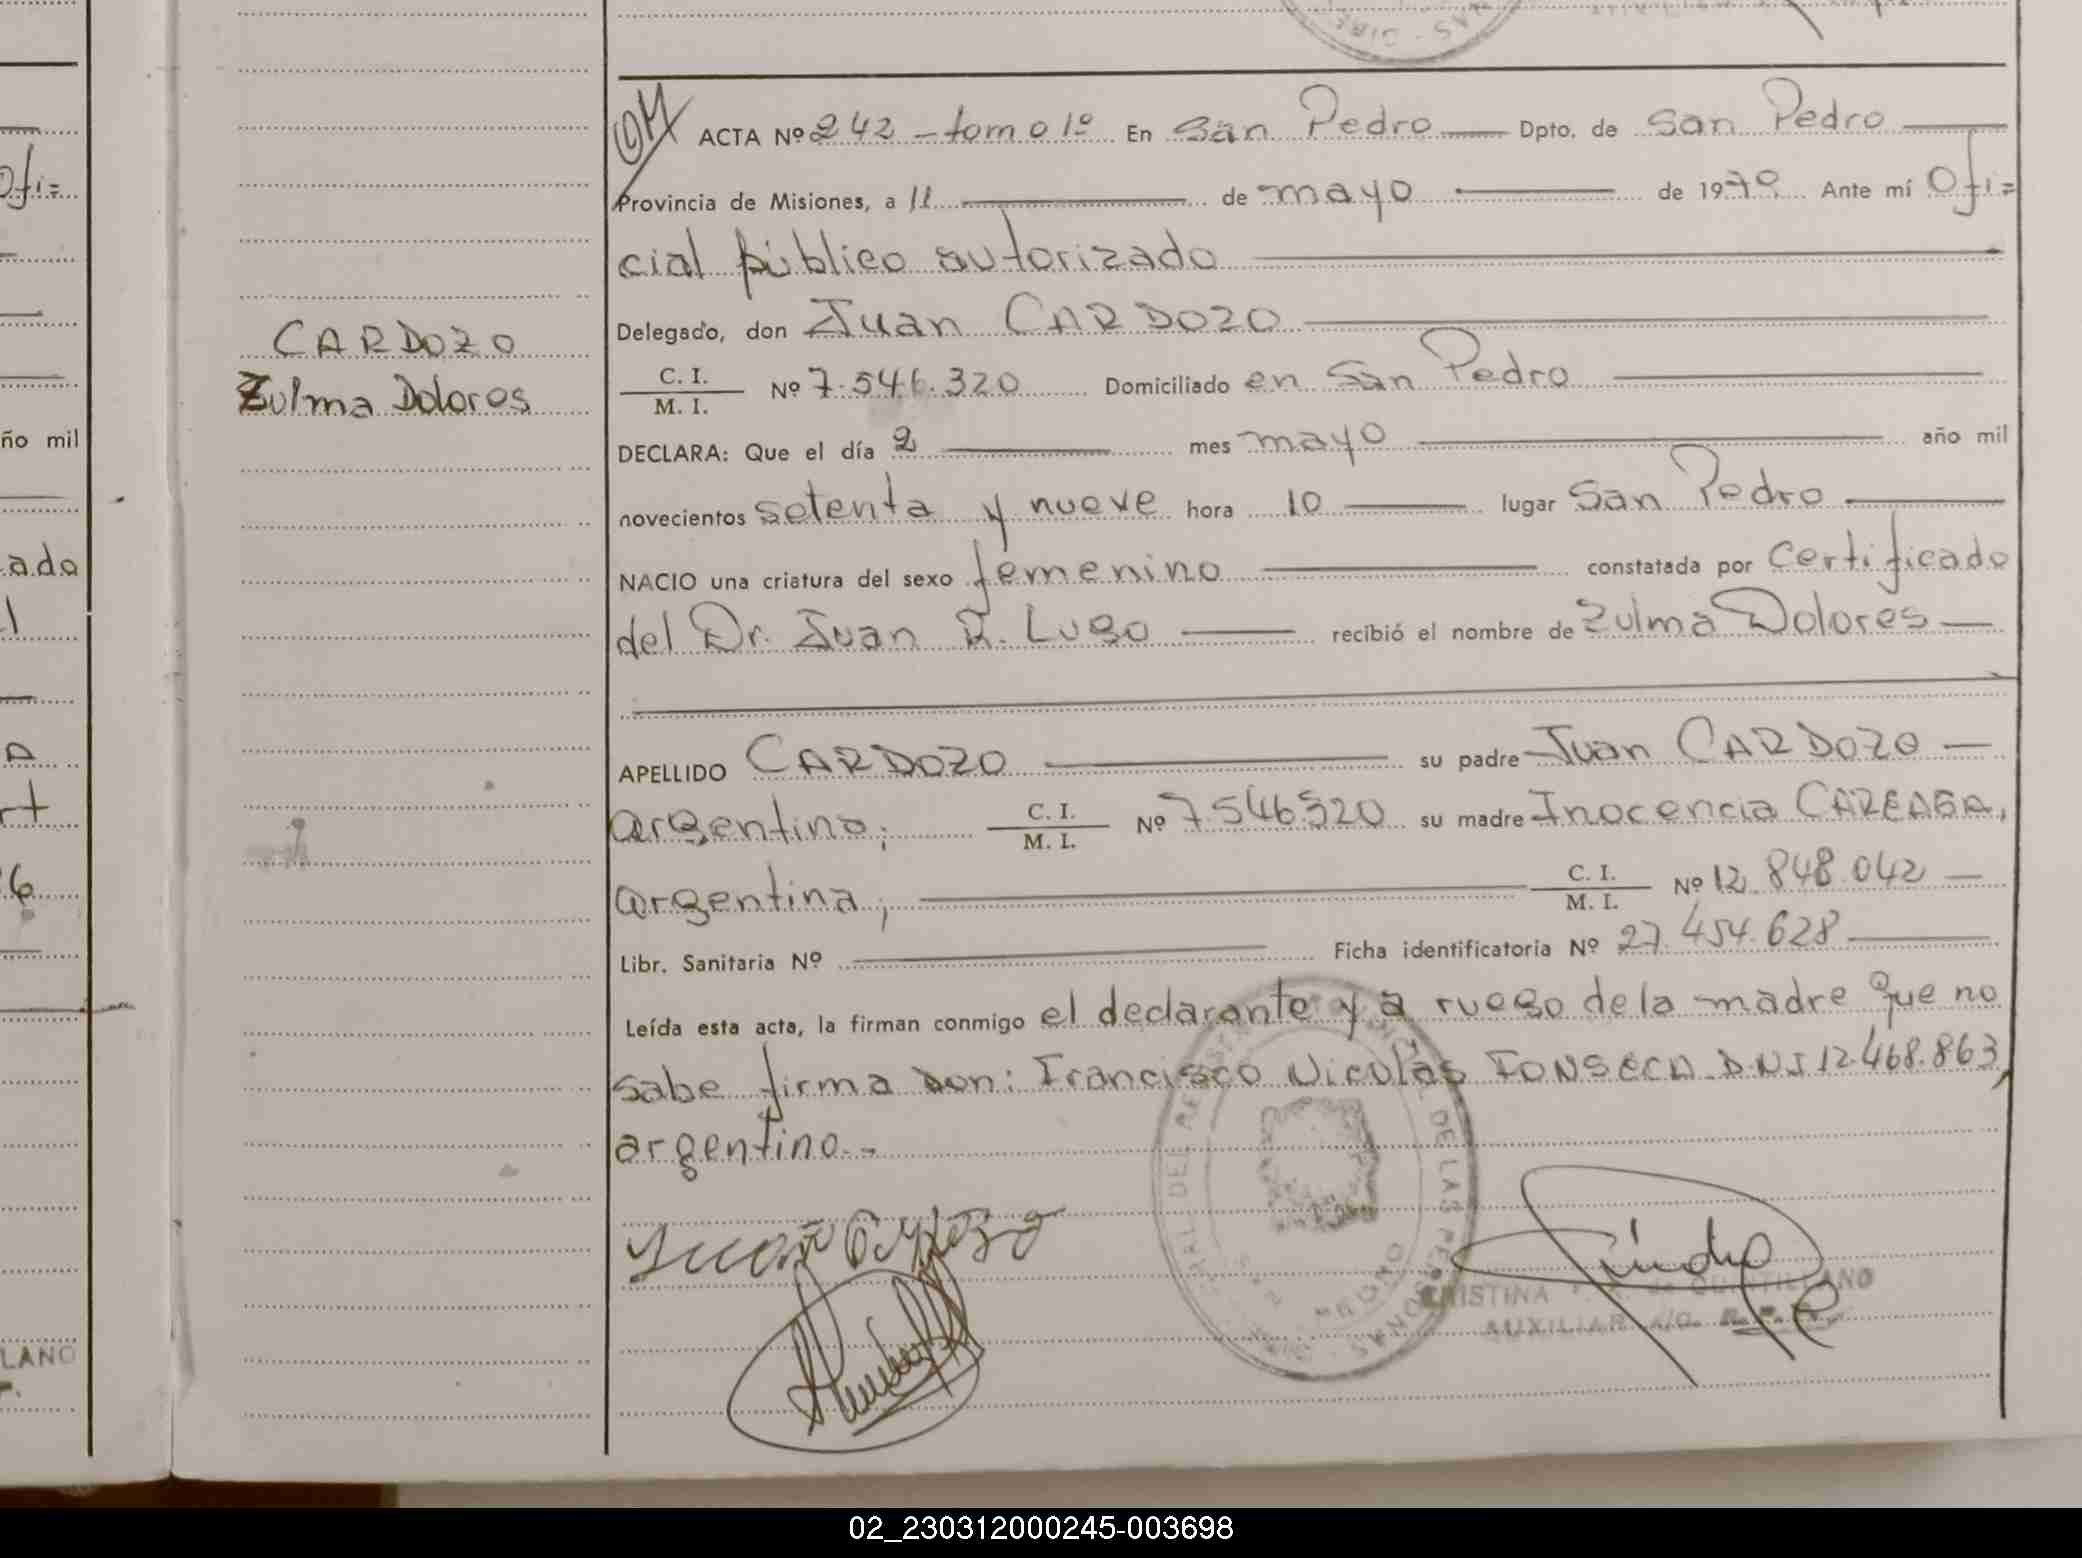 ACTA Nº 242 - tomo 1º En San Pedro Dpto. de San Pedro
Provincia de Misiones, a 11 de mayo de 1979 Ante mí Ofi=
cial público autorizado
Delegado, don Juan CARDOZO
C. I. / M. I. Nº 7.546.320 Domiciliado en San Pedro
CARDOZO
Zulma Dolores
DECLARA: Que el día 2 mes mayo año mil
novecientos setenta y nueve hora 10 lugar San Pedro
NACIO una criatura del sexo femenino constatada por Certificado
del Dr. Juan R. Lugo recibió el nombre de Zulma Dolores
APELLIDO CARDOZO su padre Juan CARDOZO
argentino; C. I. / M. I. Nº 7.546320 su madre Inocencia CAREAGA,
argentina, C. I. / M. I. Nº 12.848.042
Libr. Sanitaria Nº Ficha identificatoria Nº 27.454.628
Leída esta acta, la firman conmigo el declarante y a ruego de la madre que no
sabe firma don: Francisco Nicolás FONSECA D.N.I 12.468.863,
argentino.-
Juan Cardozo
CRISTINA de QUINTILLANO
AUXILIAR
ño mil
Ofi=
ado
LANO
02_230312000245-003698